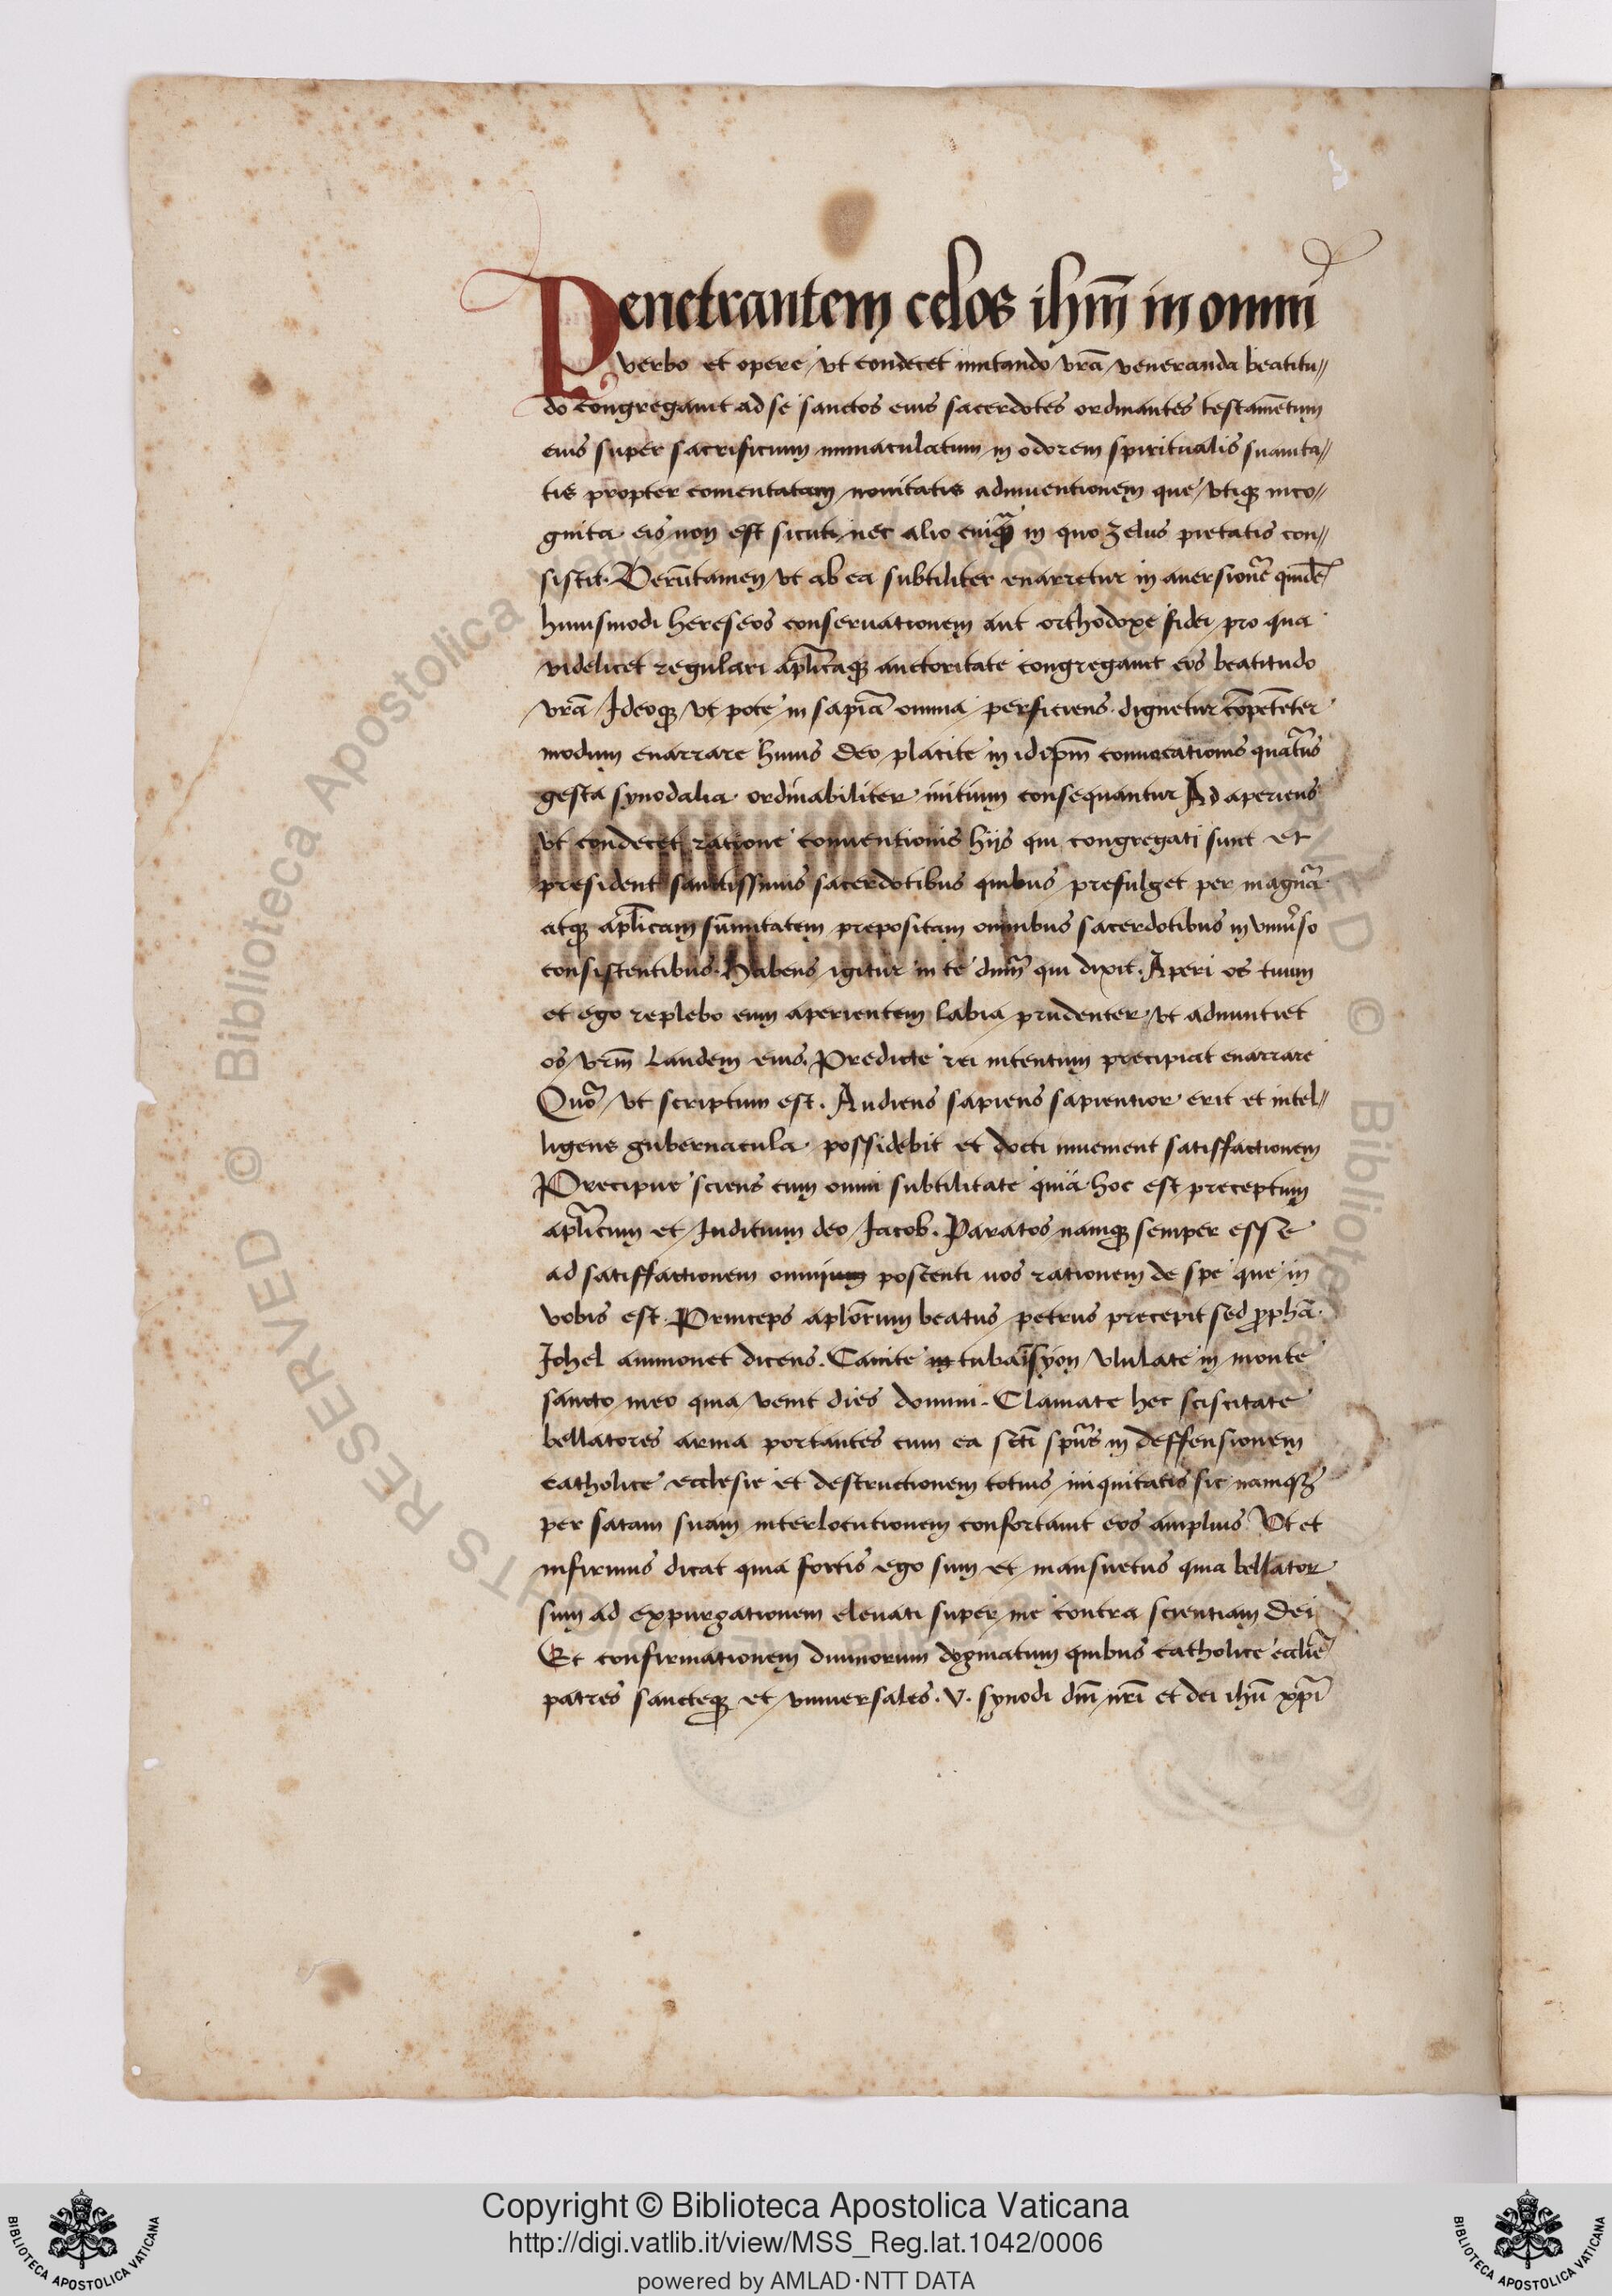 Penetrantem celos ihm̄ in omni
verbo et opere / vt condecet imitando / vrā / veneranda beatitu〃
do congregauit ad se sanctos eius sacerdotes ordinantes testamētum
eius super sacrificium immaculatum in odorem spiritualis suauita〃
tis propter comentatam nouitatis adinuentionem que / vtiqꝫ inco〃
gnita eis non est sicuti nec alio cuiqꝫ in quo zelus pietatis con〃
sistit. Verūtamen vt ab ea subtiliter enarretur in auersionē quidē
huiusmodi hereseos conseruationem aut orthodoxe fidei / pro qua
videlicet regulari apl̄icaqꝫ auctoritate congregauit eos beatitudo
vrā / Ideoqꝫ / vt pote in sapiā omnia / perficiens dignetur cōpetēter
modum enarrare huius deo placite in idip̄m conuocationis quat̄us
gesta synodalia ordinabiliter initium consequantur Ad aperiens
vt condecet ratione conuentionis hijs qui congregati sunt et
president sanctissimis sacerdotibus quibus / presulget per magnā
atqꝫ apl̄icam sūmitatem prepositam omnibus sacerdotibus in vniu̓so
consistentibus. Habens igitur in te dnm̄ qui dixit. Aperi os tuum
et ego replebo eum aperientem labia prudenter / vt adnuntiet
os / vrm̄ laudem eius. Predicte rei intentum precipiat enarrare
Quō / vt scriptum est. Audiens sapiens sapientior erit et intel〃
ligens gubernacula possidebit et docti inuenient satisfactionem
Precipue sciens cum omni subtilitate quia hoc est preceptum
apl̄icum et Iudicium deo Iacob. Paratos namqꝫ semper esse
ad satisfactionem omni poscenti nos rationem de spe que in
vobis est. Princeps aplōrum beatus petrus precepit sed p̄phā
Iohel ammonet dicens. Canite tuba ī syon / vlulate in monte
sancto meo quia / venit dies domini. Clamate hec sciscitate
bellatores arma portantes cum ea sctī spūs in deffensionem
catholice ecclesie et destructionem totius iniquitatis sic namqꝫ
per satam suam interlocutionem confortauit eos amplius Vt et
infirmus dicat quia fortis ego sum et mansuetus quia bellator
sum ad expurgationem eleuati super me contra scientiam dei
Et confirmationem diuinorum dogmatum quibus catholice eccl̄ie
patres sancteqꝫ et vniuersales .v. synodi dnī nrī et dei ihū xp̄i
© Biblioteca Apostolica Vaticana
Copyright © Biblioteca Apostolica Vaticana
http://digi.vatlib.it/view/MSS_Reg.lat.1042/0006
powered by AMLAD·NTT DATA
BIBLIOTECA APOSTOLICA VATICANA
BIBLIOTECA APOSTOLICA VATICANA